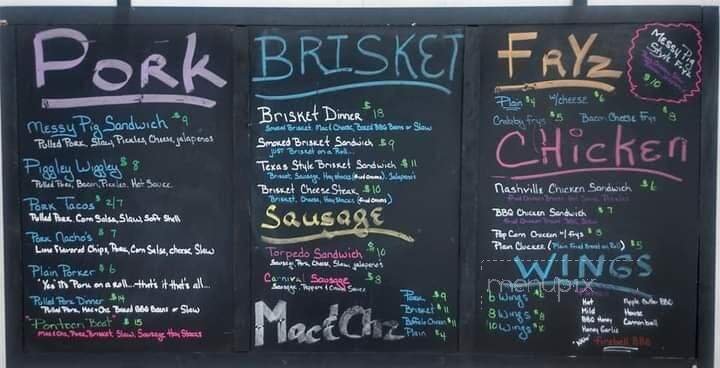 Pork
Messy Pig Sandwich $9
Pulled Pork, Slaw, Pickles, Cheese, jalapenos
Piggley Wiggley $8
Pulled Pork, Bacon, Pickles, Hot Sauce
Pork Tacos $2/7
Pulled Pork, Corn Salsa, Slaw, Soft Shell
Pork Nacho's $7
Lime Flavored Chips, Pork, Corn Salsa, cheese, Slaw
Plain Porker $6
"Yes It's Pork on a Roll...that's it that's all...
Pulled Pork Dinner $14
Pulled Pork, Mac+Che Baked BBQ Beans or Slaw
"Ponteen Boat" $15
Mac+Che, Pork, Brisket, Slaw, Sausage Hay Stacks
BRISKET
Brisket Dinner $18
Smoked Brisket, Mac & Cheese, Baked BBQ Beans or Slaw
Smoked Brisket Sandwich $9
JUST Brisket on a Roll...
Texas Style Brisket Sandwich $11
Brisket, Sausage, Hay Stacks (fried onions), Jalapeno's
Brisket Cheese Steak $10
Brisket, Cheese, Hay Stacks (fried onions)
Sausage
Torpedo Sandwich $10
Sausage, Pork, Cheese, Slaw, jalapeno's
Carnival Sausage $8
Sausage, Peppers & Onion Sauce
Mac&Chz
Pork $9
Brisket $11
Buffalo Chicken $11
Plain $4
FRYz
Messy Pig
Style Fryz
$10
Plain $4 w/cheese $6
Crabby frys $5 Bacon Cheese Frys $8
CHicken
Nashville Chicken Sandwich $6
Fried Chicken Breast Hot Sauce, Pickles
BBQ Chicken Sandwich $7
Fried Chicken Breast, BBQ, Slaw
Pop Corn Chicken w/ frys $9
Plain Clucker (Plain Fried Breast on Roll) $5
WINGS
menupix
6 Wings
8 Wings $8
10 Wings
Hot Apple Butter BBQ
Mild House
BBQ Honey Cannonball
Honey Garlic
"NEW" Fireball BBQ